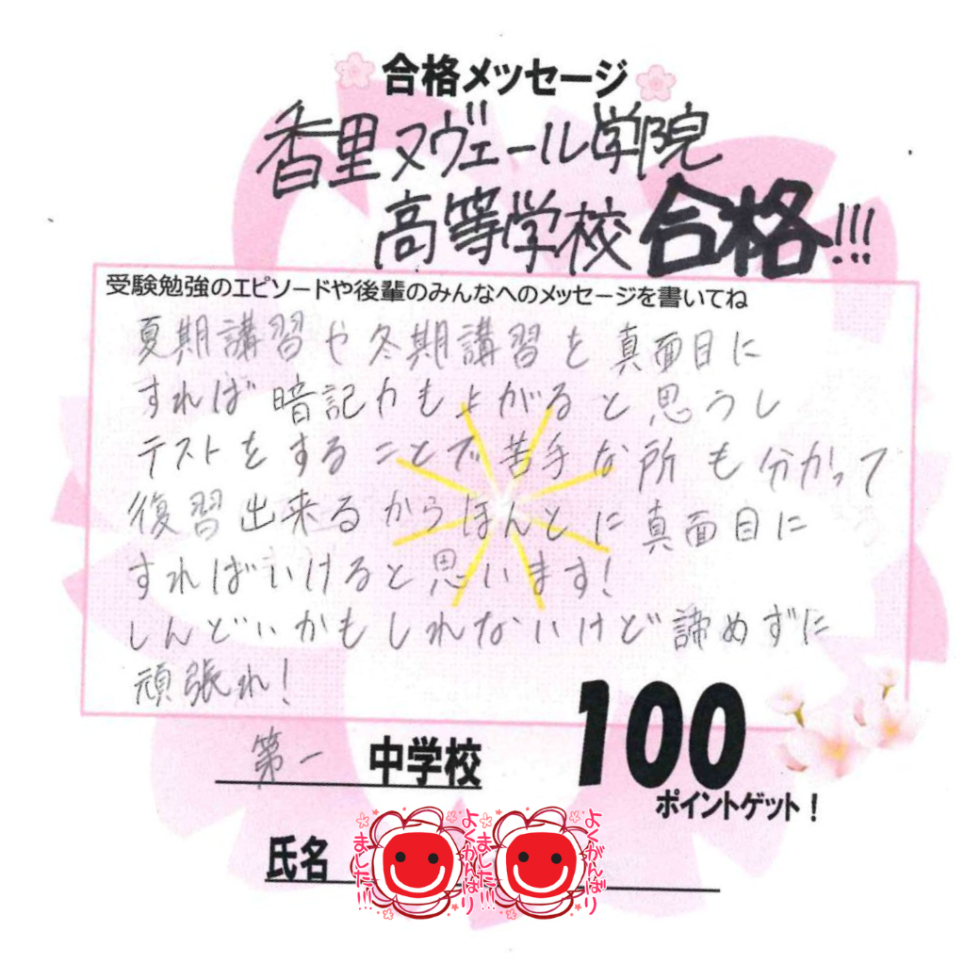 合格メッセージ
香里ヌヴェール学院
高等学校合格!!!
受験勉強のエピソードや後輩のみんなへのメッセージを書いてね
夏期講習や冬期講習を真面目に
すれば暗記力も上がると思うし
テストをすることで苦手な所も分かって
復習出来るからほんとに真面目に
すればいけると思います!
しんどいかもしれないけど諦めずに
頑張れ!
第一 中学校
100
ポイントゲット!
氏名
よくがんばり
ました!!!
よくがんばり
ました!!!